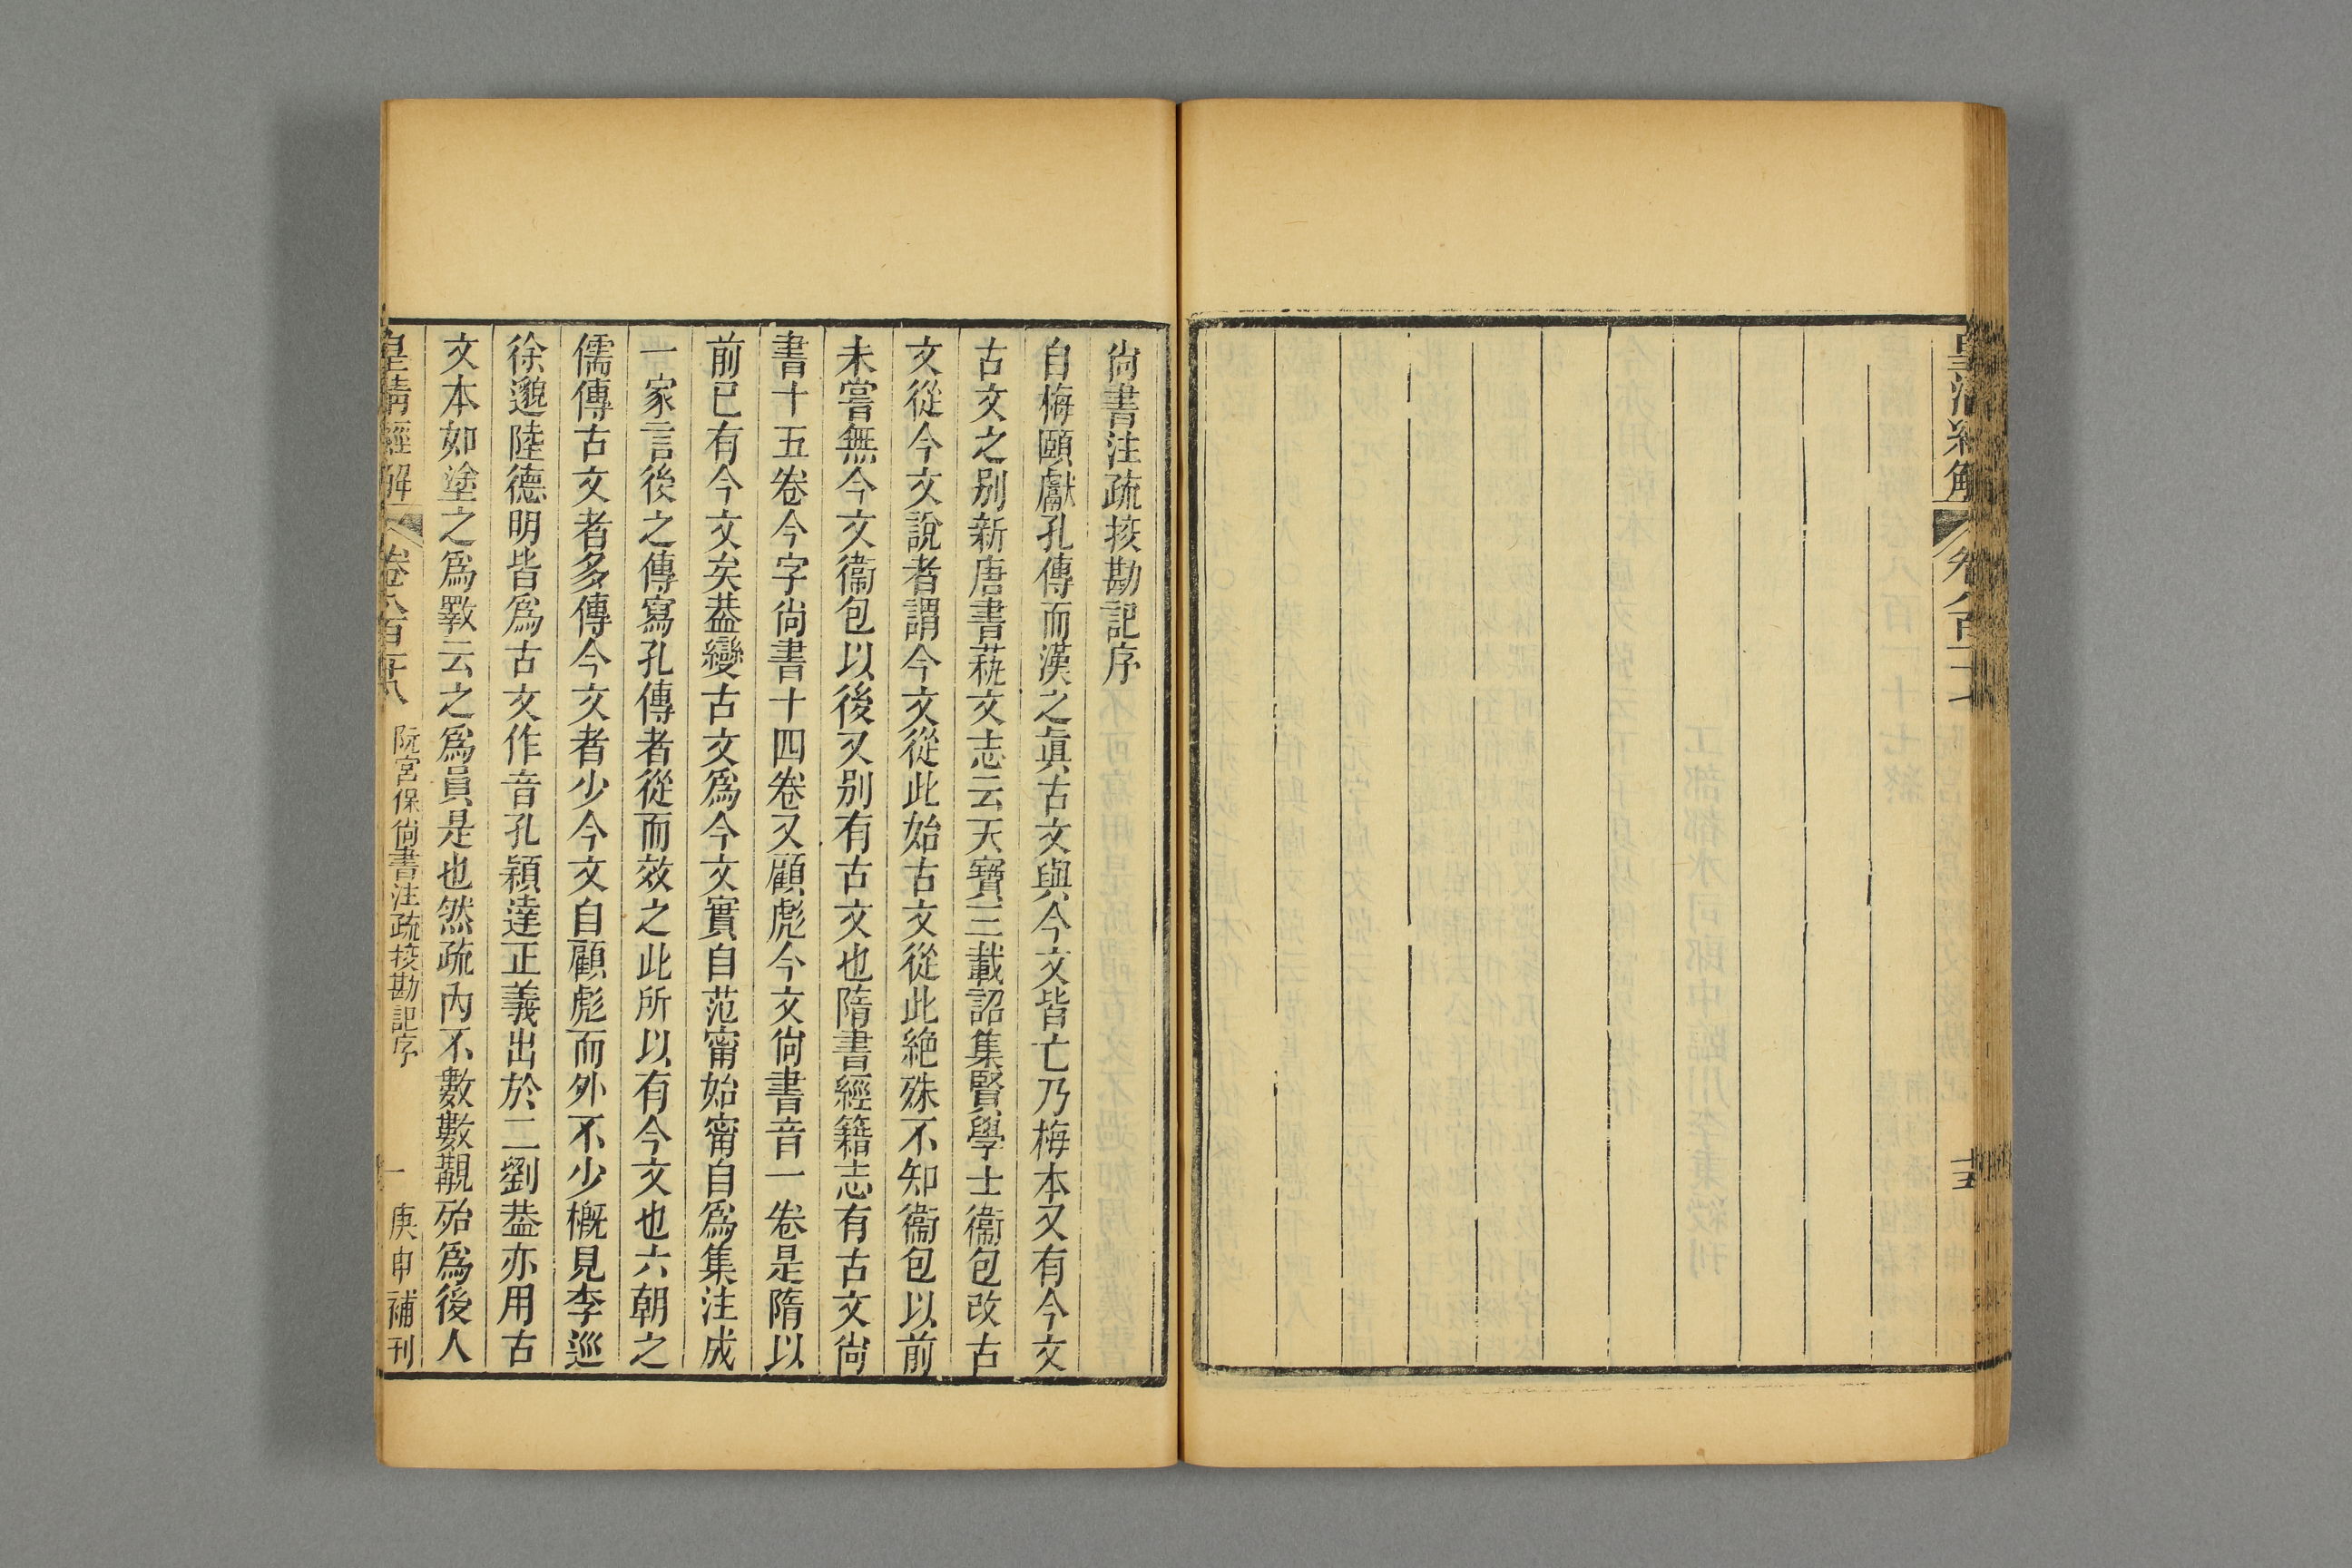 皇清經解
卷八百十七
十五
尙書注疏挍勘記序
自梅頤獻孔傳而漢之眞古文與今文皆亡乃梅本又有今文
古文之別新唐書蓺文志云天寶三載詔集賢學士衞包改古
文從今文說者謂今文從此始古文從此絶殊不知衞包以前
未嘗無今文衞包以後又別有古文也隋書經籍志有古文尙
書十五卷今字尙書十四卷又顧彪今文尙書音一卷是隋以
前已有今文矣葢變古文爲今文實自范甯始甯自爲集注成
一家言後之傳寫孔傳者從而效之此所以有今文也六朝之
儒傳古文者多傳今文者少今文自顧彪而外不少槪見李巡
徐邈陸德明皆爲古文作音孔穎達正義出於二劉葢亦用古
文本如塗之爲斁云之爲員是也然疏內不數數觀殆爲後人
皇清經解
卷八百十八
阮宮保尙書注疏挍勘記序
一
庚申補刊